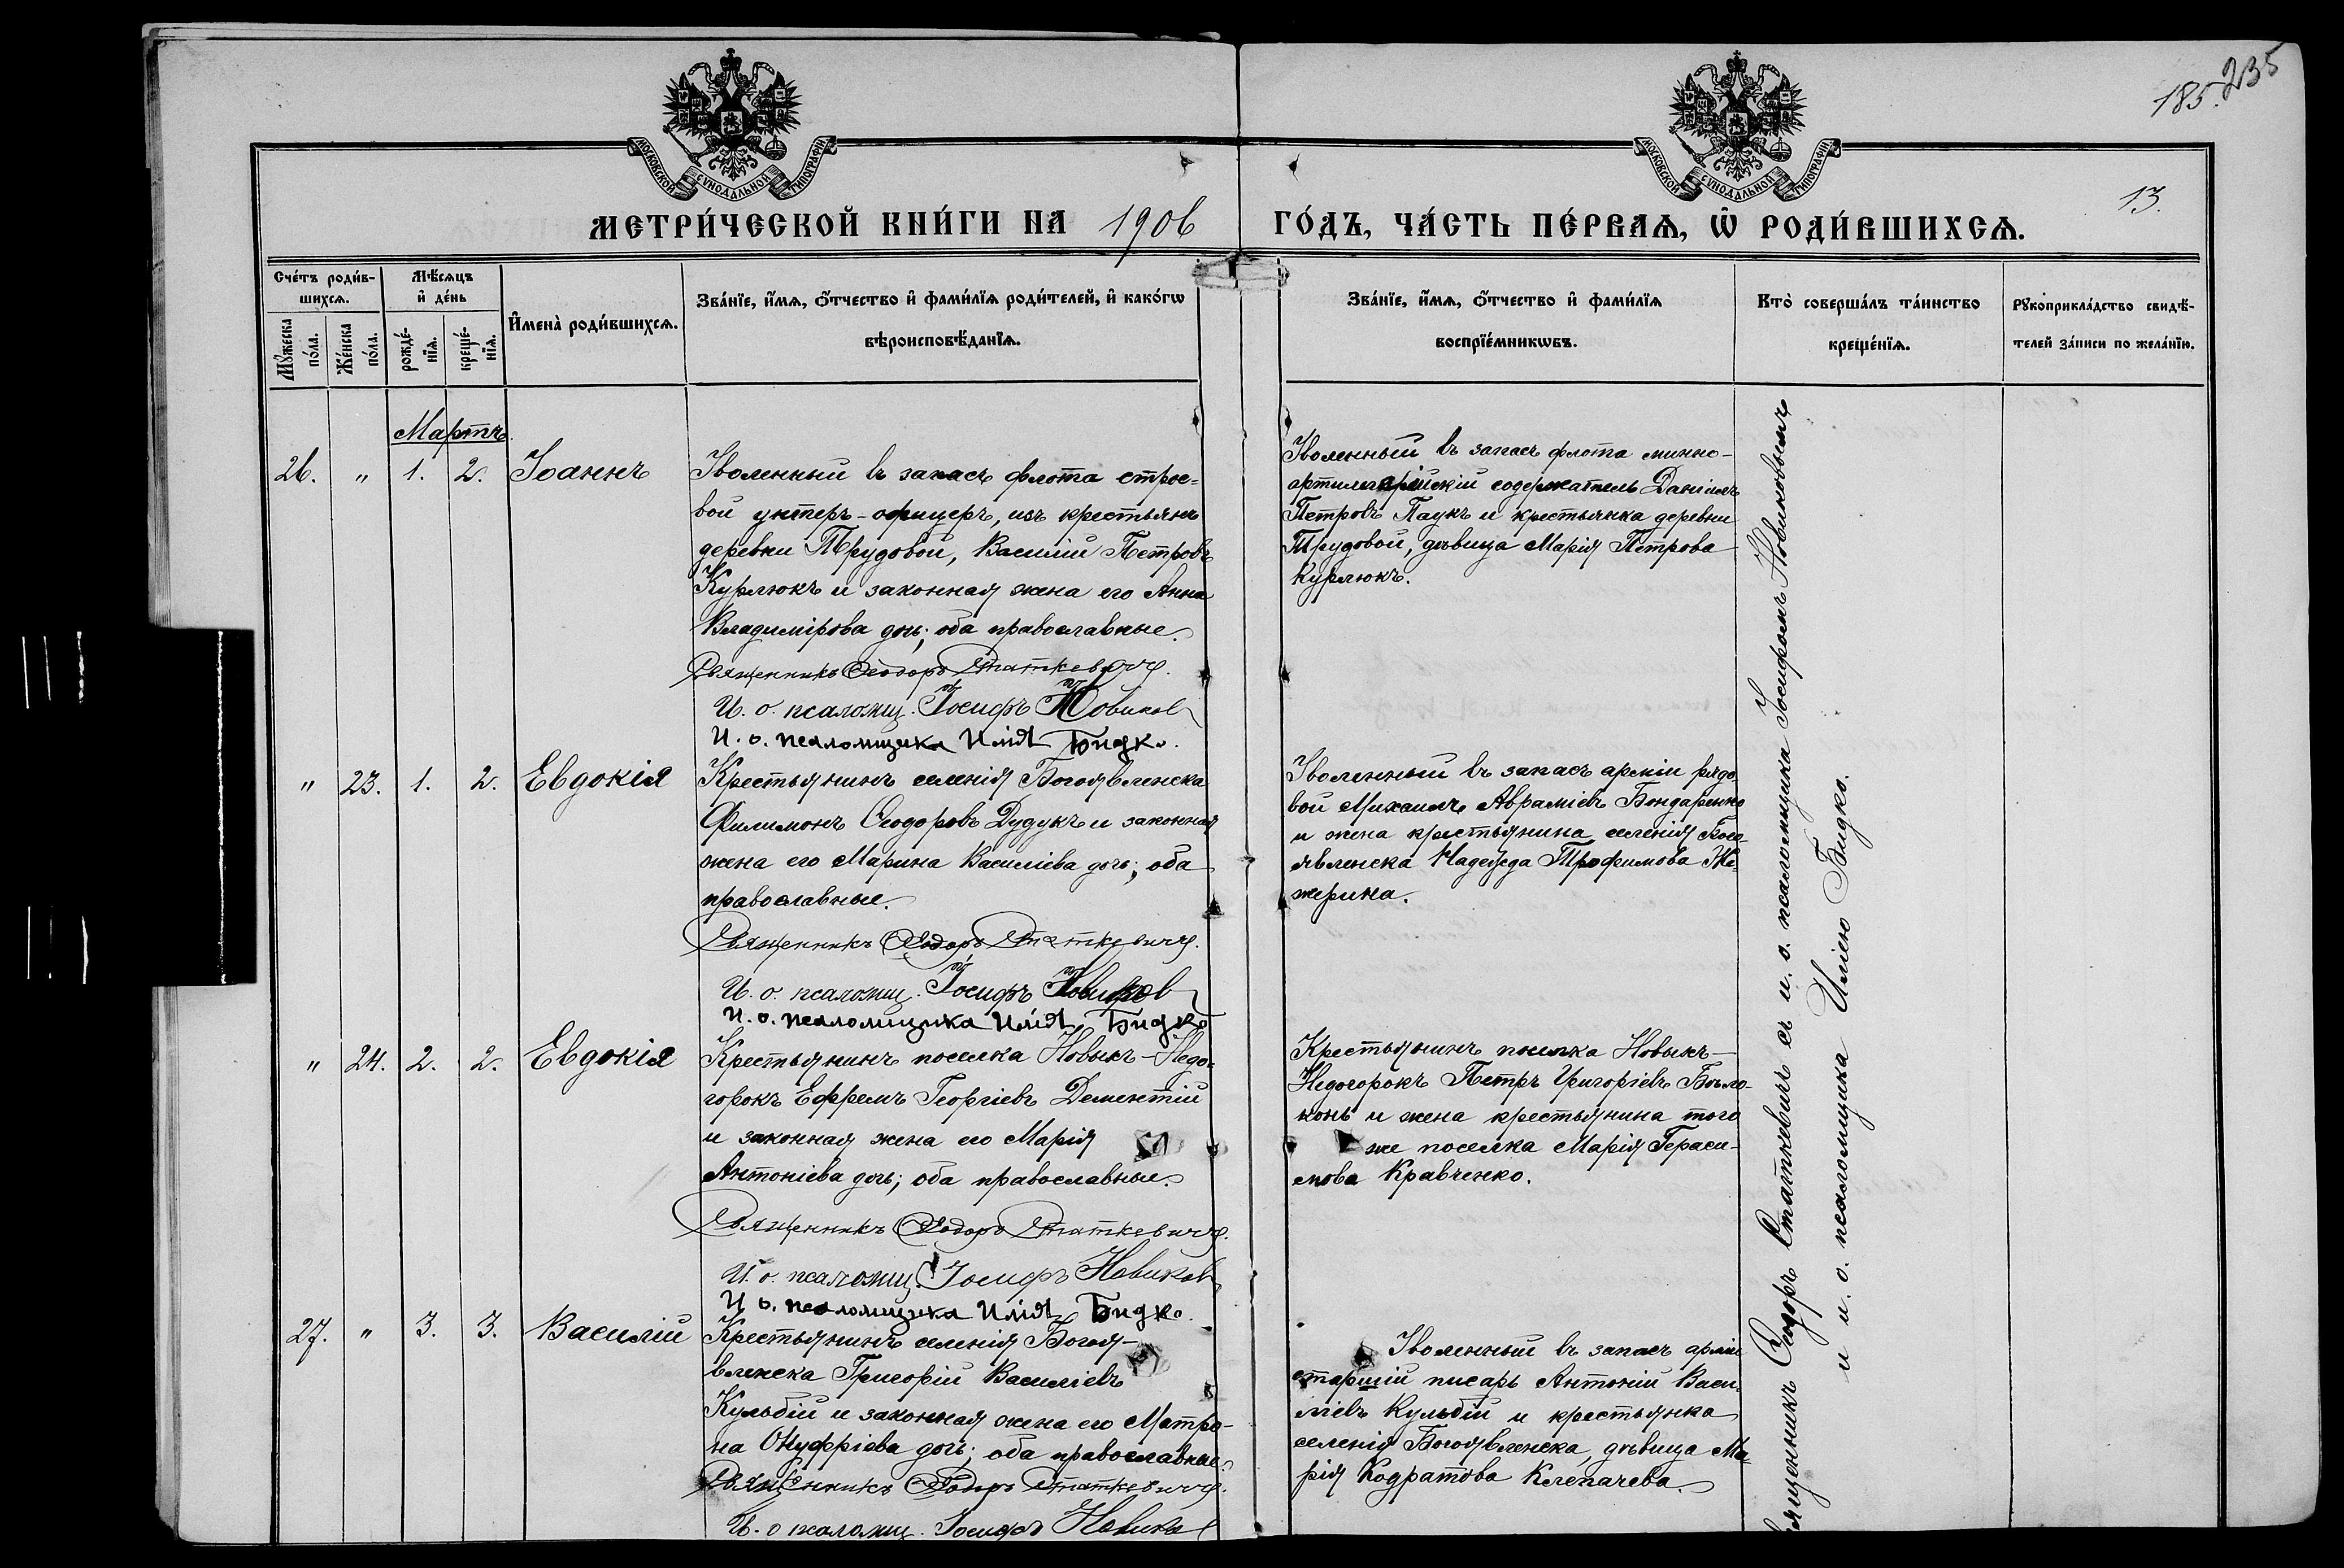 185. 235
13.
МОСКОВСКОЙ СѴНОДАЛЬНОЙ ТИПОГРАФІИ
МОСКОВСКОЙ СѴНОДАЛЬНОЙ ТИПОГРАФІИ
МЕТРИ́ЧЕСКОЙ КНИ́ГИ НА 1906 ГО́ДЪ, ЧА́СТЬ ПЕ́РВАѦ, Ѡ҆ РОДИ́ВШИХСѦ.
Сче́тъ роди́в-
шихсѧ.
Мѣ́сѧцъ
и҆ де́нь
Мꙋ́жеска
по́ла.
Же́нска
по́ла.
рожде́-
нїѧ.
креще́-
нїѧ.
И҆мена̀ роди́вшихсѧ.
Зва́нїе, и҆́мѧ, ѻ҆́тчество и҆ фами́лїѧ роди́телей, и҆ како́гѡ
вѣроисповѣ́данїѧ.
Зва́нїе, и҆́мѧ, ѻ҆́тчество и҆ фами́лїѧ
воспрїе́мникѡвъ.
Кто̀ соверша́лъ та́инство
креще́нїѧ.
Рꙋкоприкла́дство свидѣ́-
телей за́писи по жела́нїю.
Мартъ.
26. " 1. 2. Іоаннъ
Уволенный въ запасъ флота строе=
вой унтеръ-офицеръ, изъ крестьянъ
деревни Трудовой, Василій Петровъ
Курлюкъ и законная жена его Анна
Владимірова дочь; оба православные.
Священникъ Ѳеодоръ Статкевичъ.
И. о. псаломщ. Іосифъ Новиковъ
И. о. псаломщика Илія Бидко.
Уволенный въ запасъ флота минно-
артиллерійскій содержатель Даніилъ
Петровъ Паукъ и крестьянка деревни
Трудовой, дѣвица Марія Петрова
Курлюкъ.
" 23. 1. 2. Евдокія
Крестьянинъ селенія Богоявленска
Филимонъ Ѳеодоровъ Дудукъ и законная
жена его Марина Василіева дочь; оба
православные.
Священникъ Ѳеодоръ Статкевичъ.
И. о. псаломщ. Іосифъ Новиковъ
И. о. псаломщика Илія Бидко
Уволенный въ запасъ арміи рядо-
вой Михаилъ Авраміевъ Бондаренко
и жена крестьянина селенія Бого-
явленска Надежда Трофимова Же-
жерина.
" 24. 2. 2. Евдокія
Крестьянинъ поселка Новыхъ-Недо-
горокъ Ефремъ Георгіевъ Дементій
и законная жена его Марія
Антоніева дочь; оба православные.
Священникъ Ѳеодоръ Статкевичъ.
И. о. псаломщ. Іосифъ Новиковъ
И о. псаломщика Илія Бидко.
Крестьянинъ поселка Новыхъ-
Недогорокъ Петръ Григоріевъ Бѣло-
конь и жена крестьянина того
же поселка Марія Гераси-
мова Кравченко.
27. " 3. 3. Василій
Крестьянинъ селенія Богоя-
вленска Григорій Василіевъ
Кульбій и законная жена его Матро-
на Онуфріева дочь; оба православные.
Священникъ Ѳеодоръ Статкевичъ.
И. о псаломщ. Іосифъ Новиковъ
Уволенный въ запасъ арміи
старшій писарь Антоній Васи-
ліевъ Кульбій и крестьянка
селенія Богоявленска, дѣвица Ма-
рія Кодратова Клепачева.
Священникъ Ѳеодоръ Статкевичъ съ и. о. псаломщика Іосифомъ Новиковымъ
и и. о. псаломщика Иліею Бидко.